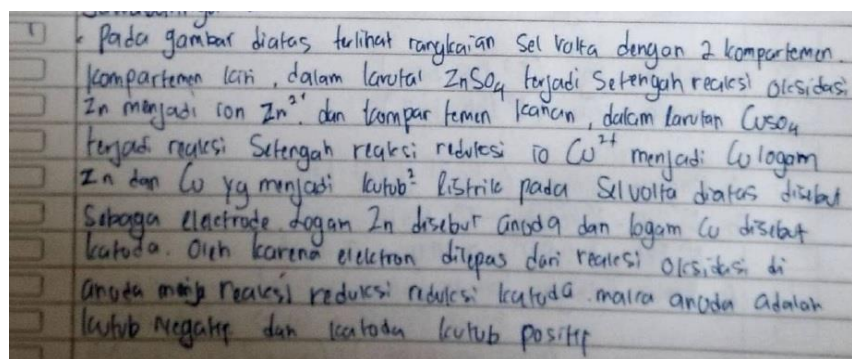 1 . Pada gambar diatas terlihat rangkaian Sel volta dengan 2 kompartemen.
kompartemen kiri, dalam larutal ZnSO4 terjadi Setengah reaksi oksidasi
Zn menjadi ion Zn2+. dan kompar temen kanan, dalam larutan CuSO4
terjadi reaksi Setengah reaksi reduksi io Cu2+ menjadi Cu logam
Zn dan Cu yg menjadi kutub2 listrik pada Sel volta diatas disebut
Sebaga electrode. Logam Zn disebut anoda dan logam Cu disebut
katoda. Oleh karena elektron dilepas dari reaksi oksidasi di
anoda reaksi reduksi reduksi katoda. maka anoda adalah
kutub Negatif dan katoda kutub positif